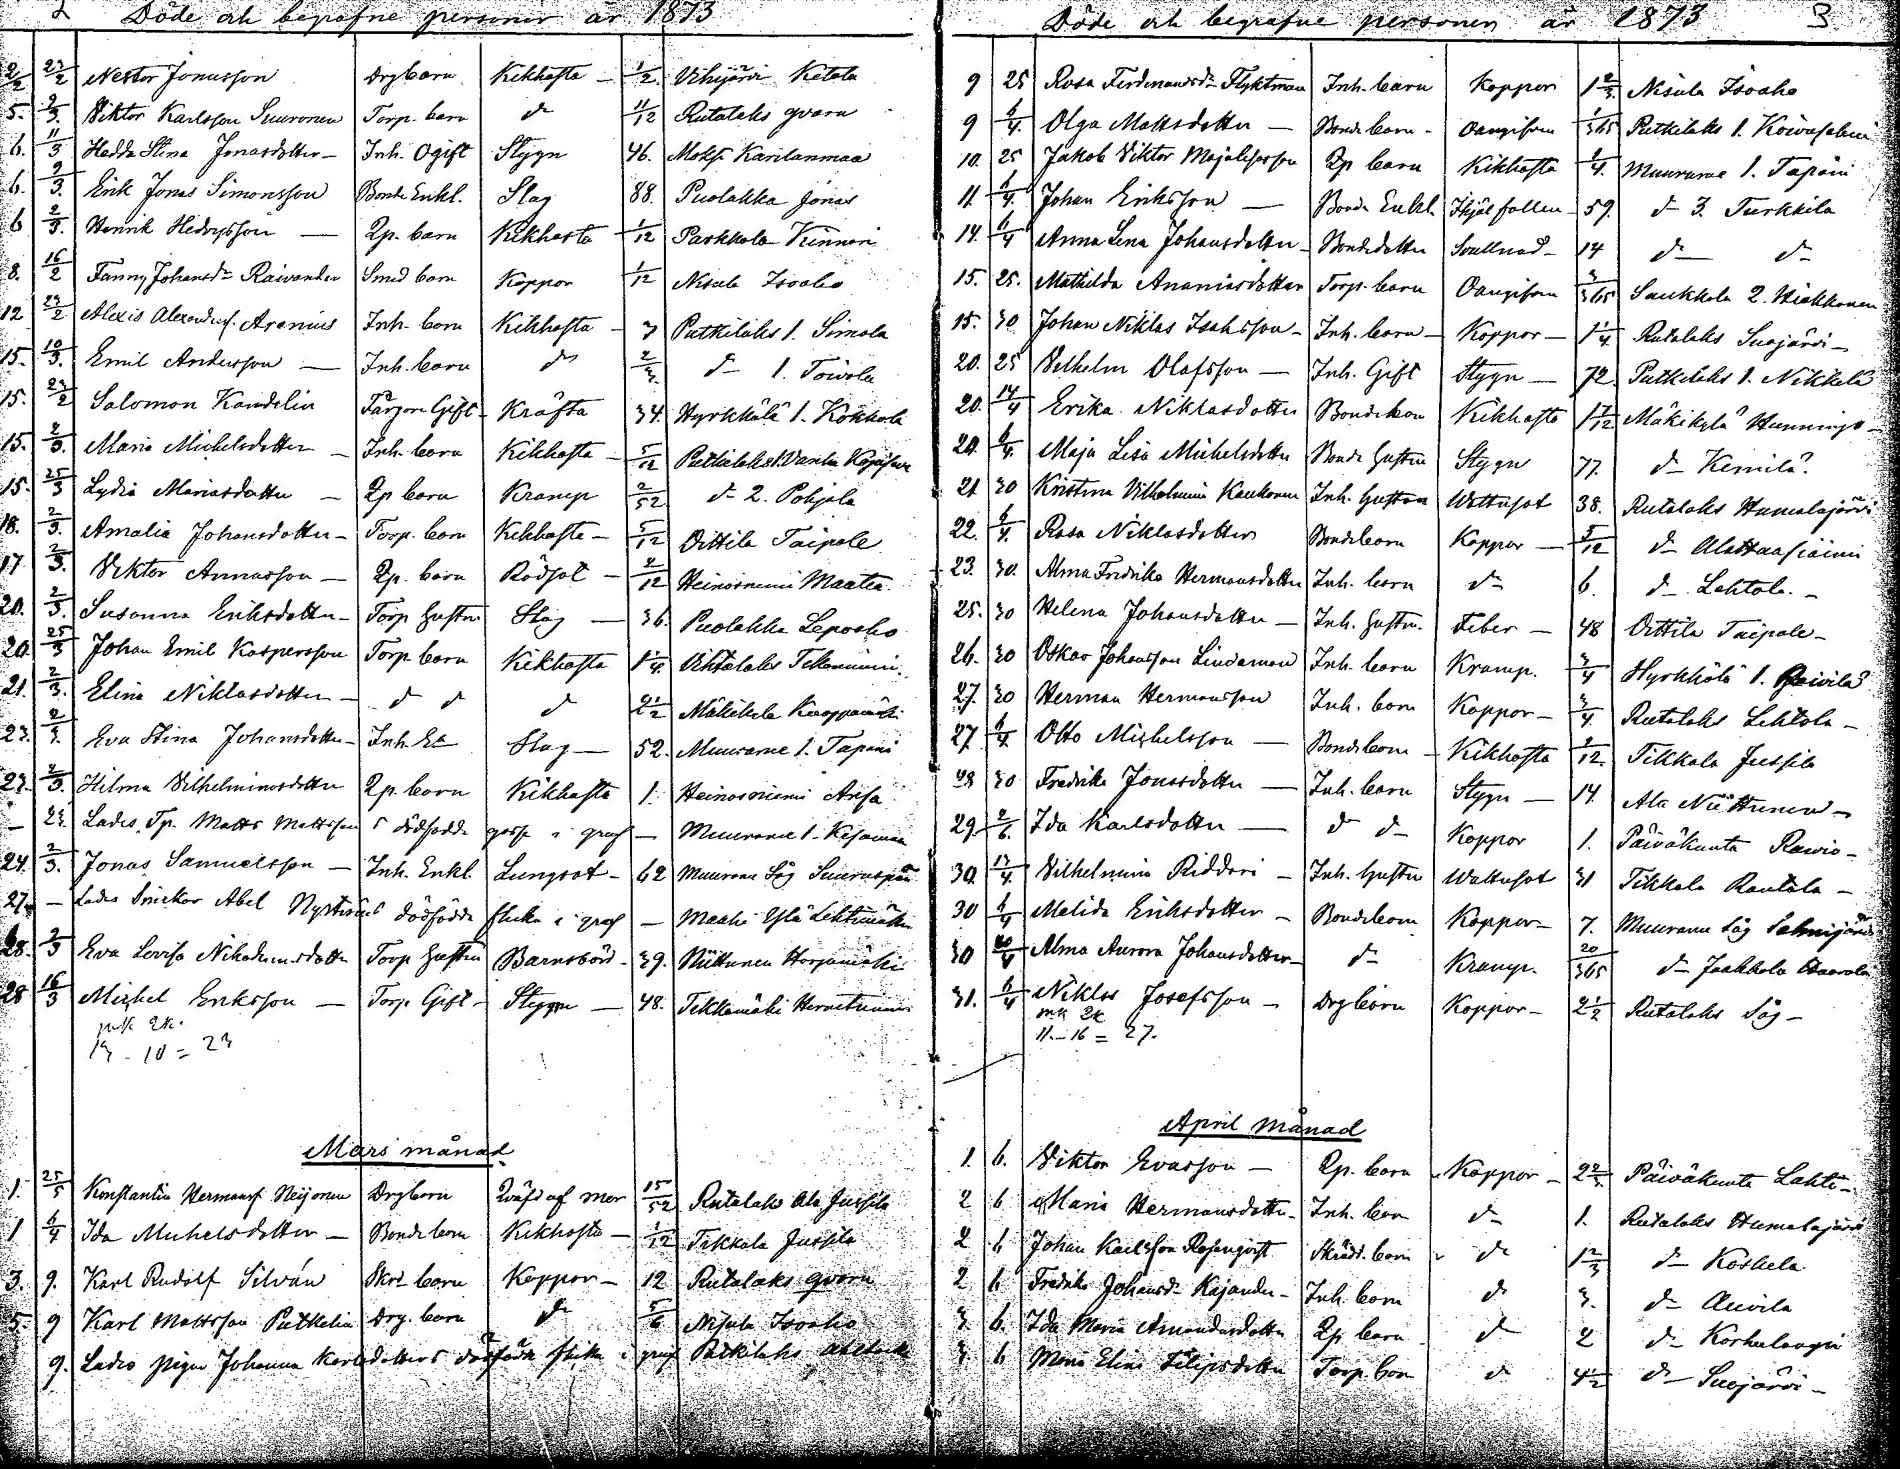 2 Döde och begrafne personer år 1873
2/2 23/2 Nestor Jonasson Drgbarn Kikhosta 1/2 Vihijärvi Ketola
5. 2/3. Viktor Karlsson Suuronen Torp. barn d 11/12 Rutalaks qvarn
6. 11/3 Hedda Stina Jonasdotter Inh. Ogift Stygn 46. Karilanmaa
6. 9/3. Erik Jonas Simonsson Bonde Enkl. Slag 88. Puolakka Jonas
6 2/3. Henrik Qp. barn Kikhosta 1/12 Parkkola Kinnari
8. 16/2 Fanny Johansd:r Smed barn Koppor 1/12 Nisula Isoaho
12 23/2 Alexis Aronius Inh. barn Kikhosta 3 Putkilaks 1. Simola
15. 10/3. Emil Andersson Inh. barn d:o 2/3. d:o 1. Toivola
15. 23/2 Salomon Kandelin Gift Kräfta 34. Hyrkkälä 1. Kokkola
15. 2/3. Maria Michelsdotter Inh. barn Kikhosta 5/12 Putkilaks 1.
15. 25/3 Lydia Mariasdotter Qp barn Kramp 2/52 d:o 2. Pohjola
18. 2/3. Amalia Johansdotter Torp. barn Kikhosta 5/12 Oittila Taipale
17. 2/3. Viktor Annasson Qp. barn Rödsot 2/12 Heinosniemi Maatia
20. 2/3. Susanna Eriksdotter Torp Hustru Slag 36. Puolakka Lepoaho
20. 25/3 Johan Emil Kaspersson Torp. barn Kikhosta 1 1/4
21. 2/3. Elina Niklasdotter d d d 2 1/2 Mäkikylä
23. 2/3. Eva Stina Johansdotter Inh. Slag 52. Muurame 1. Tapani
23. 2/3. Hilma Vilhelminasdotter Qp. barn Kikhosta 1. Heinosniemi
— 23. Lades Tp. Matts Mattsson s dödfödde gosse i graf — Muurame 1.
24. 2/3. Jonas Samuelsson Inh. Enkl. Lungsot 62 Muurame Såg
27. — Lades Snickar Abel dödfödda flicka i graf — Maahi Ylä Lehtimäki
28. 2/3 Eva Lovisa Nikodemusdotter Torp Hustru Barnsbörd 39. Niittunen
28 16/3 Michel Eriksson Torp. Gift Stygn 48. Tikkamäki
mk 2k.
13 – 10 = 23
Mars månad
1. 25/5 Konstantin Hermanss Neijonen Drgbarn Qväfd af mor 15/52 Rutalaks Ala Jussila
1 6/4 Ida Michelsdotter Bonde barn Kikhosta 1/12 Tikkala Jussila
3. 9. Karl Rudolf Silván Skr: barn Koppor 12 Rutalaks qvarn
5. 9 Karl Mattsson Putkelin Drg. barn d:o 5/6 Nisula Isoaho
9. Lades pigan Johanna Karlsdotters dödfödda flicka i graf Putkilaks
Döde och begrafne personer år 1873 3
9 25 Rosa Ferdinandsd:r Flyktman Inh. barn Koppor 1 2/3. Nisula Isoaho
9 6/4. Olga Mattsdotter Bonde barn Oangifven 1/365 Putkilaks 1. Koivusalmi
10. 25 Jakob Viktor Qp barn Kikhosta 1/4. Muurame 1. Tapani
11. 6/4. Johan Eriksson Bonde Enkl. Ihjäl fallen 59. d:o 3. Turkkila
14. 6/4 Anna Lena Johansdotter Bondedotter 14 d:o d:o
15. 25. Mathilda Ananiasdotter Torp. barn Oangifven 3/365 Saukkola 2.
15. 30 Johan Niklas Isaksson Inh. barn Koppor 1 1/4 Rutalaks Suojärvi
20. 25 Vilhelm Olafsson Inh. Gift Stygn 72. Putkilaks 1. Nikkilä
20. 14/4 Erika Niklasdotter Bondebarn Kikhosta 1 1/12 Mäkikylä
20. 6/4. Maja Lisa Michelsdotter Bonde Hustru Stygn 77. d:o Kemilä
21 30 Kristina Vilhelmina Kaukonen Inh. Hustru Wattusot 38. Rutalaks Humalajärvi
22. 6/4. Rosa Niklasdotter Bondebarn Koppor 5/12 d:o
23. 30. Alma Fredrika Hermansdotter Inh. barn d:o 6. d:o Lehtola
25. 30 Helena Johansdotter Inh. Hustru. Feber 48 Oittila Taipale
26. 30 Oskar Johansson Lindeman Inh. barn Kramp. 3/4 Hyrkkölä 1.
27. 30 Herman Hermansson Inh. barn Koppor 3/4 Rutalaks Lehtola
27 6/4 Otto Michelsson Bondebarn Kikhosta 2/12. Tikkala Jussila
28 30 Fredrika Jonasdotter Inh. barn Stygn 14. Ala Niittunen
29. 2/6. Ida Karlsdotter d d:o Koppor 1. Päiväkunta Rawio
30. 13/4 Vilhelmina Riddari Inh. Hustru Wattusot 31 Tikkala Rautala
30 6/4 Melida Eriksdotter Bondebarn Koppor 7. Muurame Såg
30 Alma Aurora Johansdotter d:o Kramp. 20/365 d:o Jaakkola
31. 6/4 Niklas Josefsson Drgbarn Koppor 2 1/2 Rutalaks Såg
mk 2k
11. – 16 = 27.
April månad
1. 6. Viktor Evasson Qp. barn Koppor 2 2/3. Päiväkunta Lahti
2 6 Maria Hermansdotter Inh. barn d:o 1. Rutalaks Humalajärvi
2 6 Johan Karlsson Rosenqvist Skrädd. barn d:o 1 2/3 d:o Koskela
2 6 Fredrika Johansd:r Kajander Inh. barn d 3. d:o Auvila
3. 6. Ida Maria Amandasdotter Qp barn d 2 d:o
3. 6 Maria Elina Filipsdotter Torp. barn d 4 1/2 d:o Suojärvi